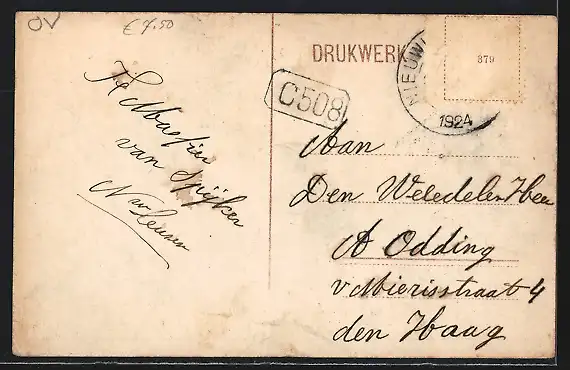 OV
€ 7.50
DRUKWERK
379
NIEUW
1924
C508
van Spijker
Aan
Den Weledelen Heer
A Odding
v Mierisstraat 4
den Haag